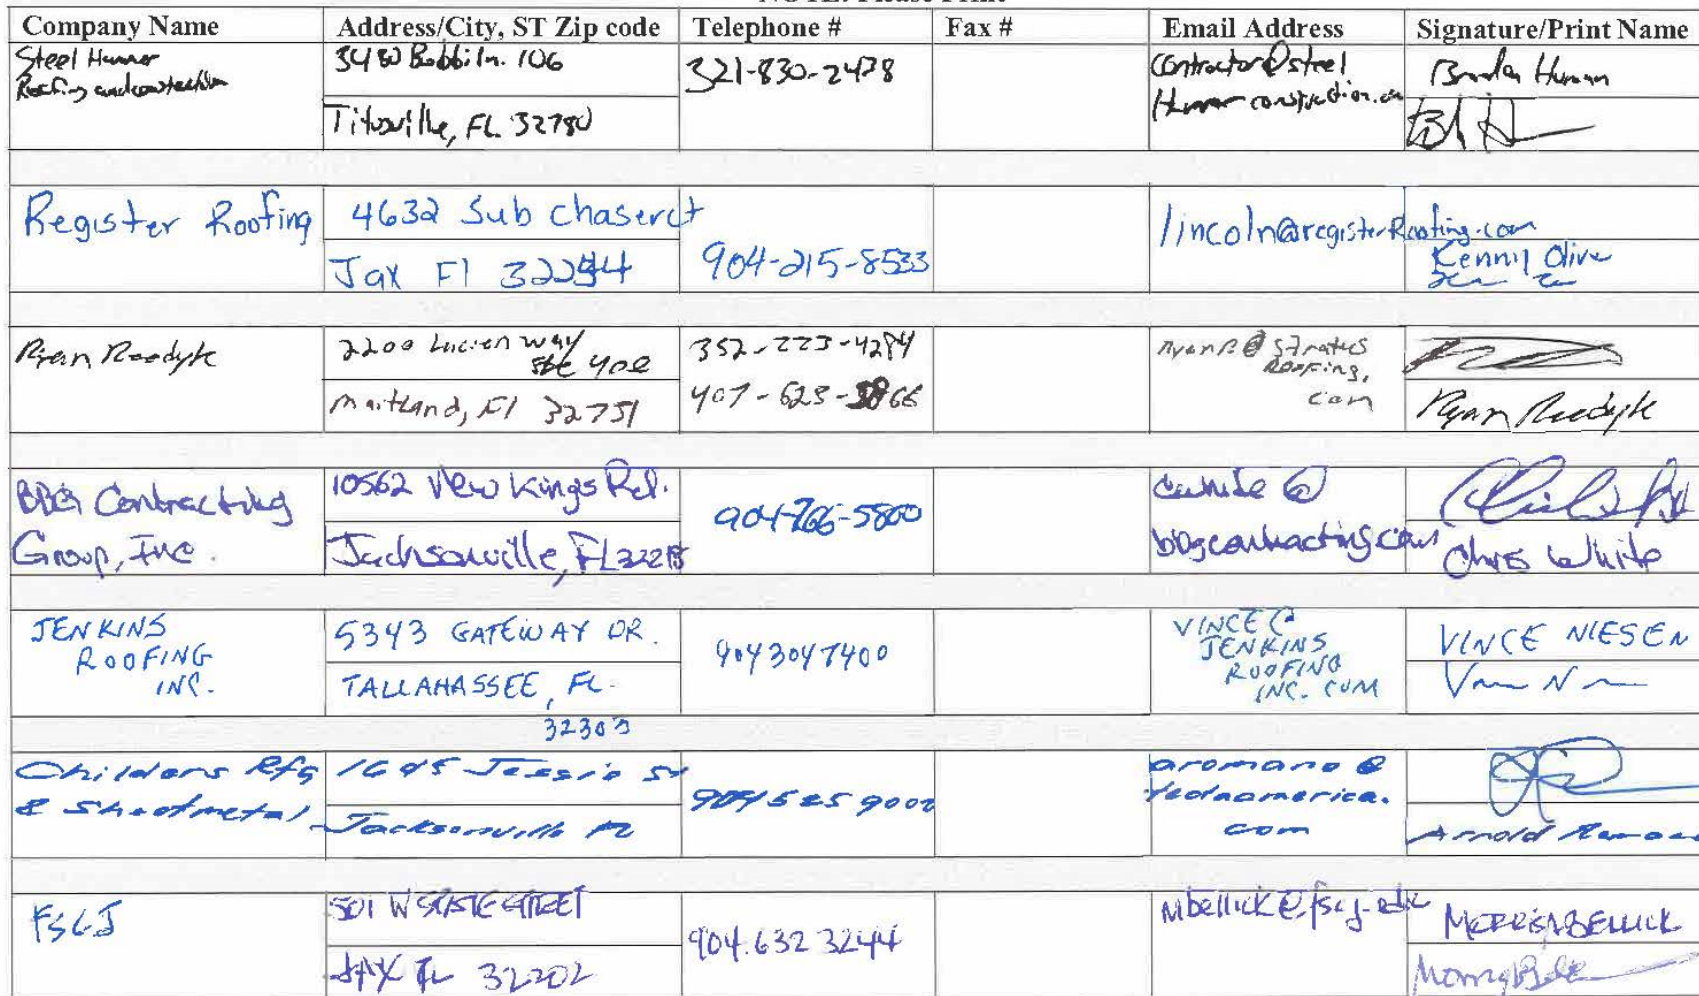 NOTE: Please Print
Company Name Address/City, ST Zip code Telephone # Fax # Email Address Signature/Print Name
Steel Hummer
Roofing and construction
3480 Bobbi Ln. 106
Titusville, FL 32780
321-830-2478
contractor@steel
Human
Register Roofing
4632 Sub chaser ct
Jax Fl 32244
904-215-8533
lincoln@registerRoofing.com
Kenny Olive
Ryan
2200 Lucien way
Ste 402
Maitland, Fl 32751
352-223-4284
407-623-3866
RyanR@Stratus
Roofing.
com
Ryan
BBG Contracting
Group, Inc.
10562 New Kings Rd.
Jacksonville, FL 32218
904-766-5800
cwhite@
bbgcontracting.com
Chris White
JENKINS
ROOFING
INC.
5343 GATEWAY DR.
TALLAHASSEE, FL.
32303
9043047400
VINCE@
JENKINS
ROOFING
INC. COM
VINCE NIESEN
Childers Rfg
& Sheetmetal
Jessie St
Jacksonville Fl
aromano@
tectaamerica.
com
Arnold Romano
FSCJ
501 W STATE STREET
JAX FL 32202
904.632 3244
mbellick@fscj.edu
BELLICK